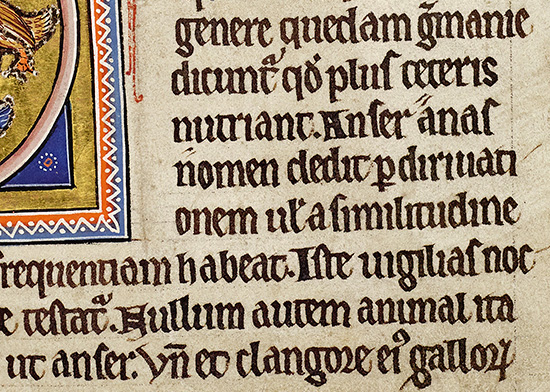 genere quedam g̃manie
dicunt᷑ qđ plus ceteris
nutriant. Anser ãnas
ñomen dedit ꝑ diriuati
onem uł a similitudine
frequentiam habeat. Iste uigilias noc
e testat᷑. Nullum autem animal ita
ut anser. Vñ et clangore eiꝰ galloꝝ